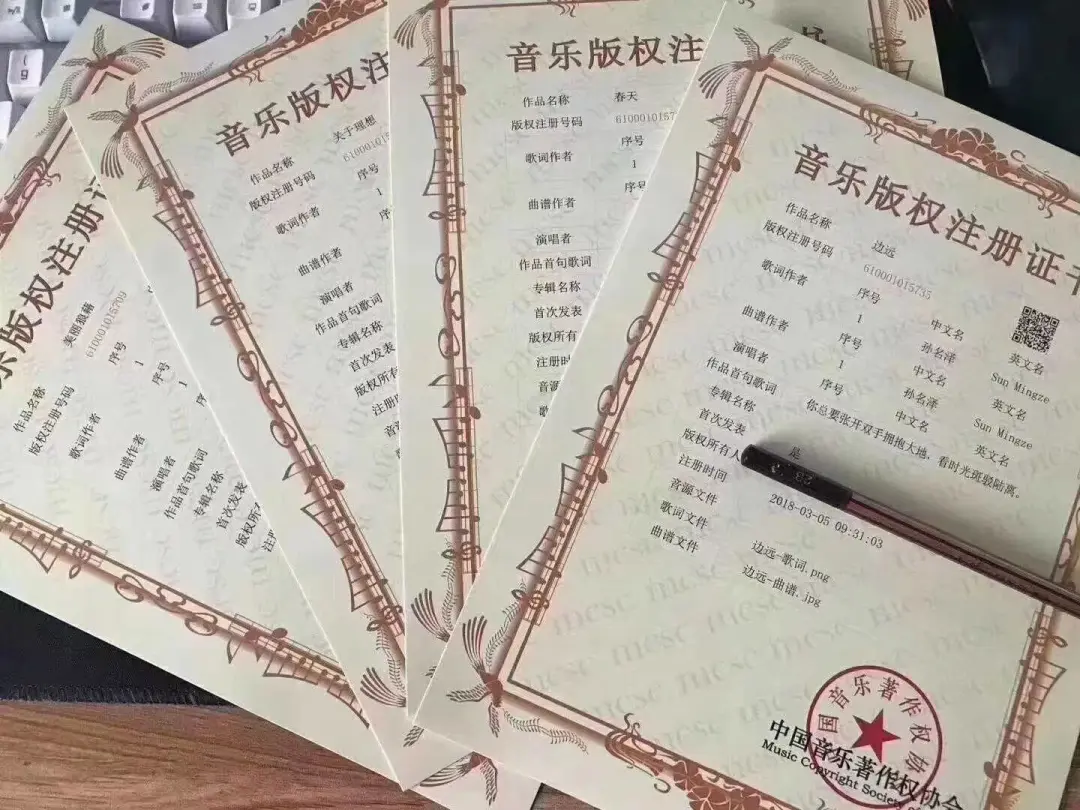 乐版权注册证
作品名称
美丽狼藉
版权注册号码
610001015709
歌词作者
序号
1
曲谱作者
序号
1
演唱者
作品首句歌词
专辑名称
首次发表
版权所
音乐版权注
作品名称
关于理想
版权注册号码
610001015
歌词作者
序号
1
曲谱作者
演唱者
作品首句歌词
专辑名称
首次发表
版权所有
注册时
音乐版权注
作品名称 春天
版权注册号码 6100010157
歌词作者
序号
1
曲谱作者
序号
演唱者
作品首句歌词
专辑名称
首次发表
版权所有
注册时
音源
音乐版权注册证书
作品名称 边远
版权注册号码 610001015735
歌词作者 序号 中文名 英文名
1 孙名泽 Sun Mingze
曲谱作者 序号 中文名 英文名
1 孙名泽 Sun Mingze
演唱者 序号 中文名 英文名
作品首句歌词 你总要张开双手拥抱大地，看时光斑驳陆离。
专辑名称
首次发表 是
版权所有人
注册时间 2018-03-05 09:31:03
音源文件
歌词文件 边远-歌词.png
曲谱文件 边远-曲谱.jpg
国音乐著作权
中国音乐著作权协会
Music Copyright Society